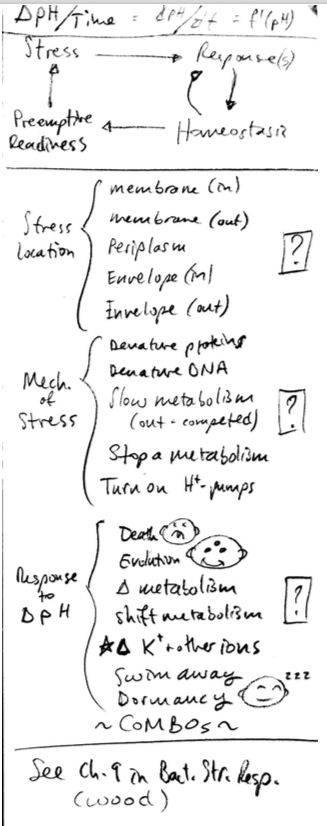 ΔpH/Time = dpH/dt = f'(pH)
Stress → Response(s)
Preemptive ← Homeostasis
Readiness
Stress Location
membrane (in)
membrane (out)
Periplasm
Envelope (in)
Envelope (out)
?
Mech. of Stress
Denature proteins
Denature DNA
Slow metabolism
(out-competed)
Stop a metabolism
Turn on H+-pumps
?
Response to ΔpH
Death
Evolution
Δ metabolism
shift metabolism
★Δ K+ + other ions
Swim away
Dormancy zzz
?
~ COMBOS ~
See Ch. 9 in Bact. Str. Resp.
(Wood)